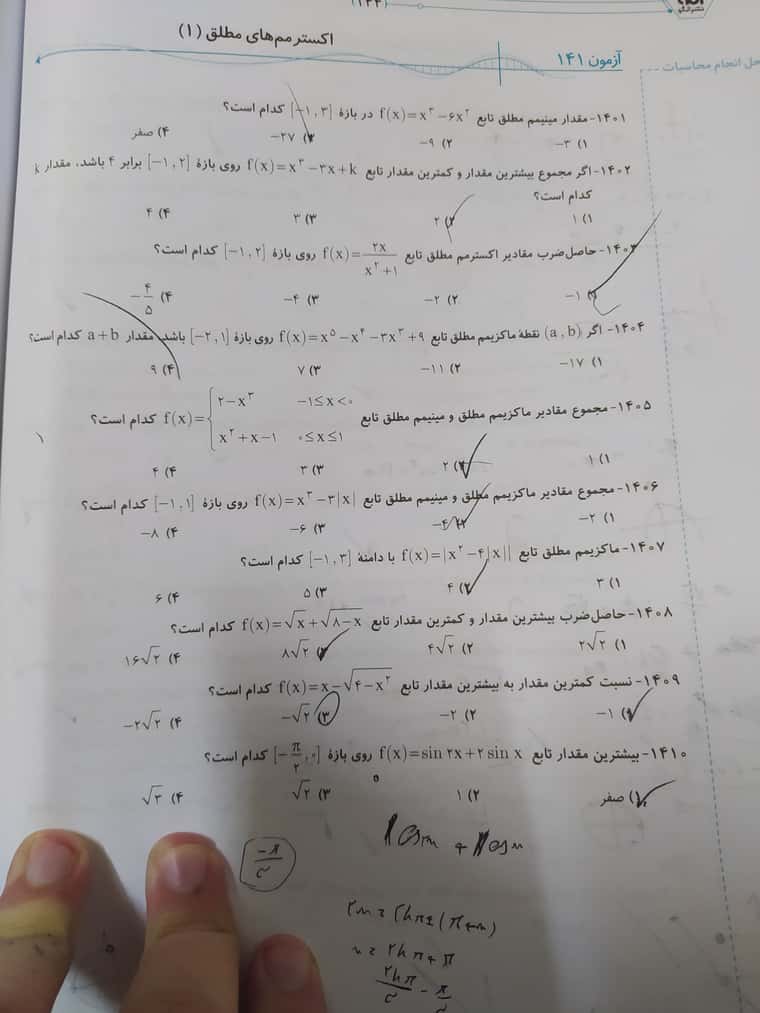 (۱۴۴)
نشر الگو
اکسترمم‌های مطلق (۱)
آزمون ۱۴۱
حل انجام محاسبات
۱۴۰۱- مقدار مینیمم مطلق تابع f(x)=x³−۶x² در بازهٔ [−۱,۳] کدام است؟
۱) −۳ ۲) −۹ ۳) −۲۷ ۴) صفر
۱۴۰۲- اگر مجموع بیشترین مقدار و کمترین مقدار تابع f(x)=x³−۳x+k روی بازهٔ [−۱,۲] برابر ۴ باشد، مقدار k
کدام است؟
۱) ۱ ۲) ۲ ۳) ۳ ۴) ۴
۱۴۰۳- حاصل‌ضرب مقادیر اکسترمم مطلق تابع f(x)=۲x/(x²+۱) روی بازهٔ [−۱,۲] کدام است؟
۱) −۱ ۲) −۲ ۳) −۴ ۴) −۴/۵
۱۴۰۴- اگر (a,b) نقطهٔ ماکزیمم مطلق تابع f(x)=x⁵−x⁴−۳x³+۹ روی بازهٔ [−۲,۱] باشد، مقدار a+b کدام است؟
۱) −۱۷ ۲) −۱۱ ۳) ۷ ۴) ۹
۱۴۰۵- مجموع مقادیر ماکزیمم مطلق و مینیمم مطلق تابع f(x)={ ۲−x³ −۱≤x<۰
x²+x−۱ ۰≤x≤۱ کدام است؟
۱) ۱ ۲) ۲ ۳) ۳ ۴) ۴
۱۴۰۶- مجموع مقادیر ماکزیمم مطلق و مینیمم مطلق تابع f(x)=x³−۳|x| روی بازهٔ [−۱,۱] کدام است؟
۱) −۲ ۲) −۴ ۳) −۶ ۴) −۸
۱۴۰۷- ماکزیمم مطلق تابع f(x)=|x²−۴|x|| با دامنهٔ [−۱,۳] کدام است؟
۱) ۳ ۲) ۴ ۳) ۵ ۴) ۶
۱۴۰۸- حاصل‌ضرب بیشترین مقدار و کمترین مقدار تابع f(x)=√x+√(۸−x) کدام است؟
۱) ۲√۲ ۲) ۴√۲ ۳) ۸√۲ ۴) ۱۶√۲
۱۴۰۹- نسبت کمترین مقدار به بیشترین مقدار تابع f(x)=x−√(۴−x²) کدام است؟
۱) −۱ ۲) −۲ ۳) −√۲ ۴) −۲√۲
۱۴۱۰- بیشترین مقدار تابع f(x)=sin ۲x+۲ sin x روی بازهٔ [−π/۲,۰] کدام است؟
۱) صفر ۲) ۱ ۳) √۲ ۴) √۳